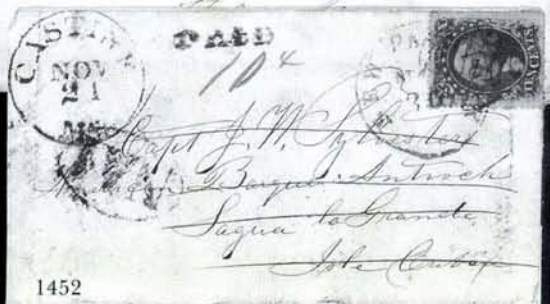 CASTINE
NOV
21
Me
PAID
10¢
PAID
TEN CENTS
Capt J. W. Sylvester
Barque Antioch
Sagua la Grande
Isle Cuba
1452